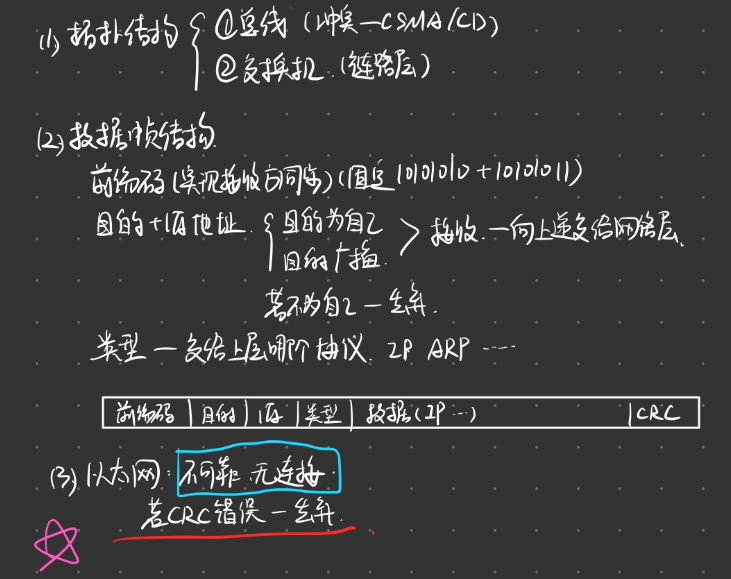 (1) 拓扑结构 { ①总线 (冲突—CSMA/CD)
②交换机 (链路层)
(2) 数据帧结构
前缀码 (实现接收方同步) (固定 10101010 + 10101011)
目的+源地址 { 目的为自己
目的广播 > 接收 — 向上递交给网络层.
若不为自己 — 丢弃.
类型 — 交给上层哪个协议. IP ARP ……
前缀码 | 目的 | 源 | 类型 | 数据 (IP …) | CRC
(3) 以太网: 不可靠 无连接.
若CRC错误 — 丢弃.